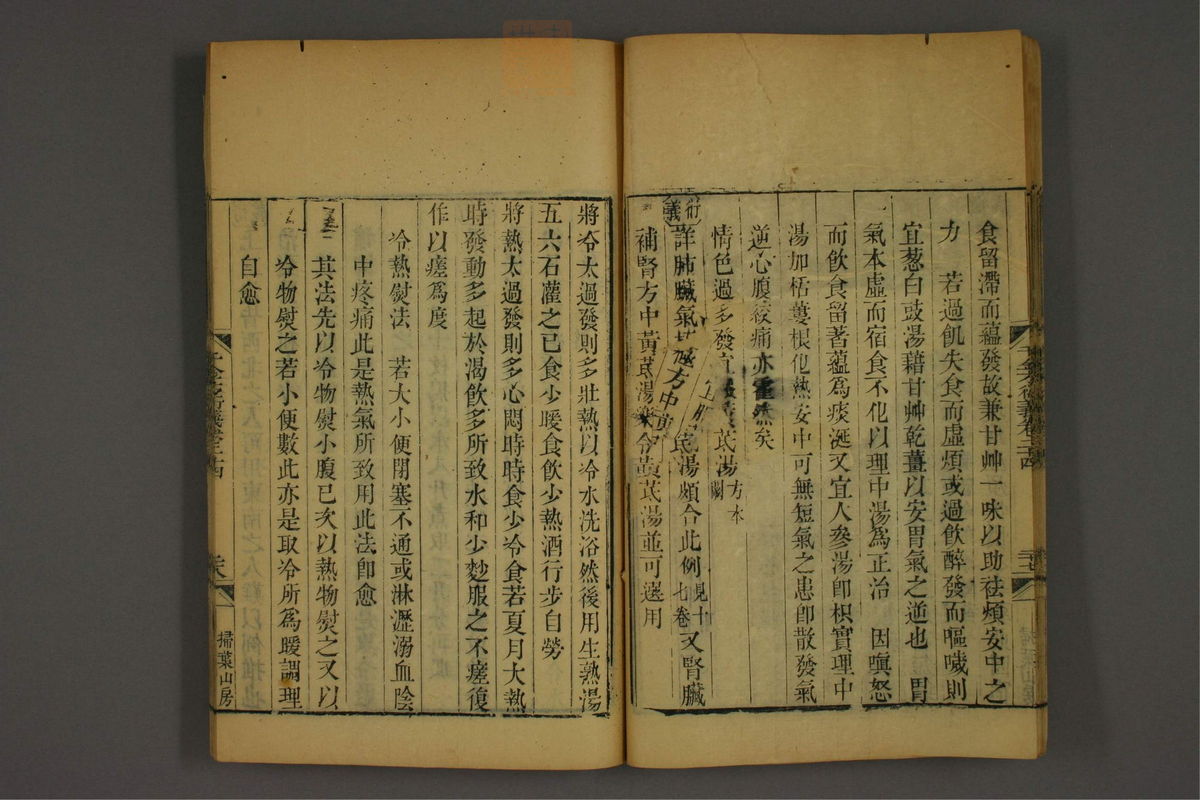 食留滯而蘊發故兼甘艸一味以助祛煩安中之
力　若過飢失食而虛煩或過飲醉發而嘔噦則
宜葱白豉湯藉甘艸乾薑以安胃氣之逆也　胃
氣本虛而宿食不化以理中湯為正治　因嗔怒
而飲食留著蘊為痰涎又宜人參湯卽枳實理中
湯加栝蔞根化熱安中可無短氣之患卽散發氣
逆心腹絞痛亦霍然矣
情色過多發宜黃芪湯方本闕
衍義
詳肺臟氣極方中黃芪湯頗合此例見十七卷又腎臟
補腎方中黃芪湯令黃芪湯並可選用
將冷太過發則多壯熱以冷水洗浴然後用生熟湯
五六石灌之已食少暖食飲少熱酒行步自勞
將熱太過發則多心悶時時食少冷食若夏月大熱
時發動多起於渴飲多所致水和少麨服之不瘥復
作以瘥為度
冷熱熨法　若大小便閉塞不通或淋瀝溺血陰
中疼痛此是熱氣所致用此法卽愈
其法先以冷物熨小腹已次以熱物熨之又以
冷物熨之若小便數此亦是取冷所為暖調理
自愈
掃葉山房